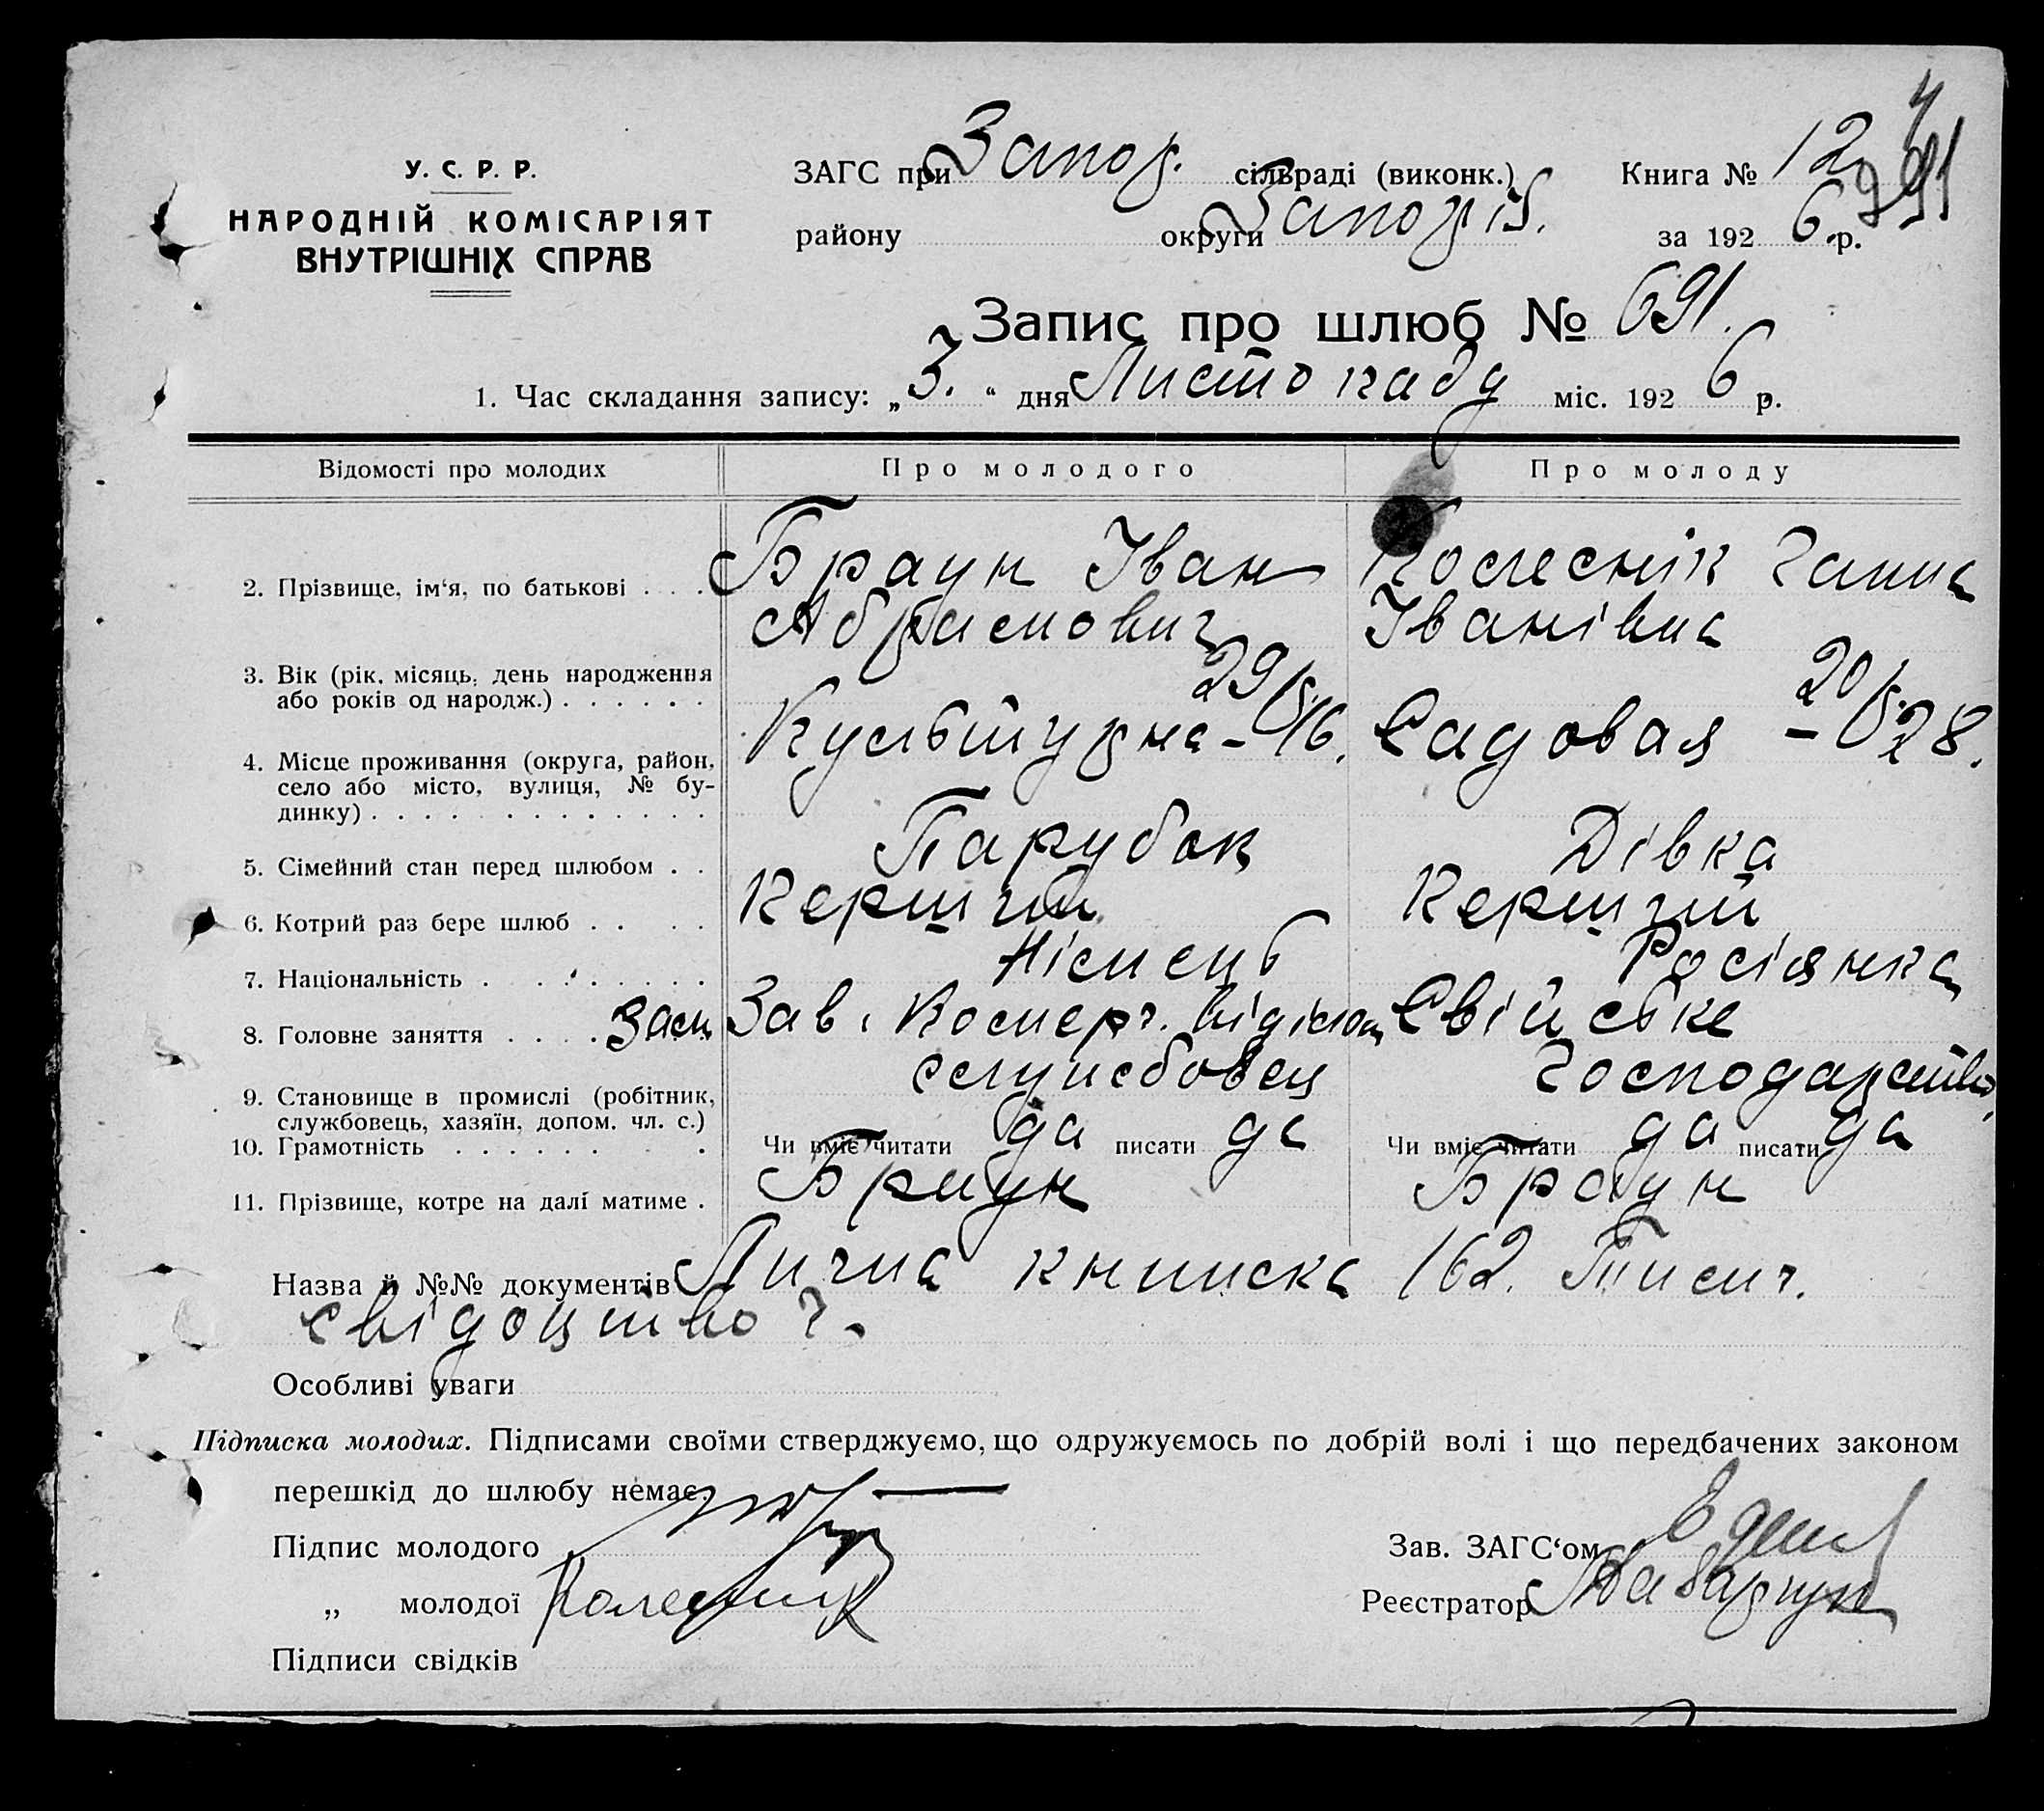 У. С. Р. Р.
НАРОДНІЙ КОМІСАРІЯТ
ВНУТРІШНІХ СПРАВ
ЗАГС при Запор. сільраді (виконк.) Книга № 12
району округи Запоріз. за 192 6 р.
Запис про шлюб № 691.
1. Час складання запису: „ 3. “ дня Листопаду міс. 192 6 р.
Відомості про молодих Про молодого Про молоду
2. Прізвище, ім‘я, по батькові . . . Браун Іван Колеснік Ганна
Абрамович Іванівна
3. Вік (рік, місяць, день народження 29 20
або років од народж.) . . . . . .
Культурна – 16. Садовая – 28.
4. Місце проживання (округа, район,
село або місто, вулиця, № бу-
динку) . . . . . . . . . . . . .
5. Сімейний стан перед шлюбом . . Парубок Дівка
6. Котрий раз бере шлюб . . . . Перший Перший
7. Національність . . . . . . . Німець Росіянка
8. Головне заняття . . . . Зам Зав. Комерч. відділом Свійське
службовец Господарство,
9. Становище в промислі (робітник,
службовець, хазяїн, допом. чл. с.)
10. Грамотність . . . . . . . Чи вміє читати да писати да Чи вміє читати да писати да
11. Прізвище, котре на далі матиме . Браун Браун
Назва й №№ документів Лична книжка 162. Тисич.
свідоцтво
Особливі уваги
Підписка молодих. Підписами своїми стверджуємо, що одружуємось по добрій волі і що передбачених законом
перешкід до шлюбу немає.
Підпис молодого Зав. ЗАГС‘ом
„ молодої Колесник Реєстратор
Підписи свідків